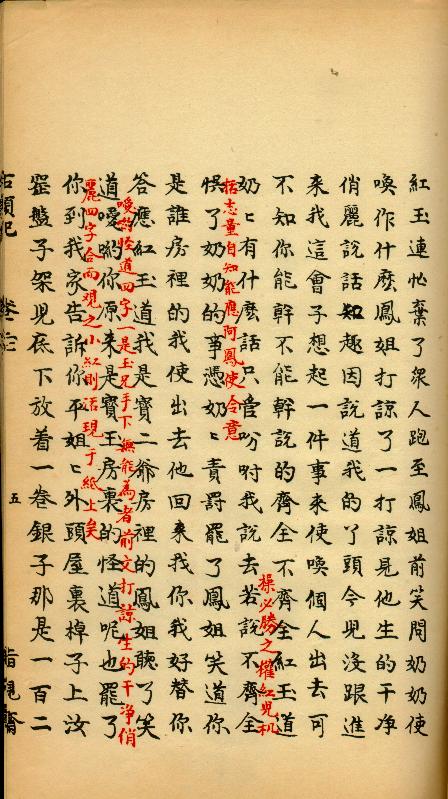 紅玉連忙棄了眾人跑至鳳姐前笑問奶奶使
喚作什麽鳳姐打諒了一打諒見他生的干净
俏麗說話知趣因說道我的丫頭今兒没跟進
来我這會子想起一件事来使喚個人出去可
不知你能幹不能幹說的齊全不齊全紅玉道
操必勝之權紅兒机
奶〻有什麽話只管吩咐我說去若說不齊全
括志量自知能應阿鳳使令意
悮了奶奶的事憑奶〻責罰罷了鳳姐笑道你
是誰房裡的我使出去他回来我你我好替你
答應紅玉道我是寶二爷房裡的鳳姐聽了笑
噯喲怪道四字一是玉兄手下無能為者前文打諒生的干净俏
道噯喲你原来是寶玉房裏的怪道呢也罷了
麗四字合而観之小紅則活現于紙上矣
你到我家告訴你平姐〻外頭屋裏棹子上汝
窑盤子架兒底下放着一卷銀子那是一百二
石頭記
五
脂硯齋